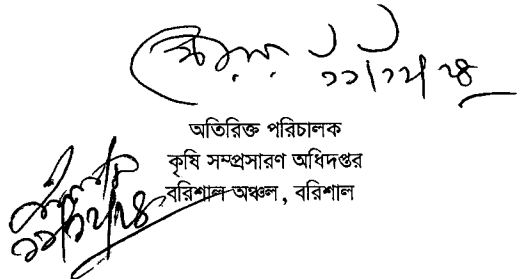 ১১/১২/২৪
অতিরিক্ত পরিচালক
কৃষি সম্প্রসারণ অধিদপ্তর
বরিশাল অঞ্চল, বরিশাল
১১/১২/২৪